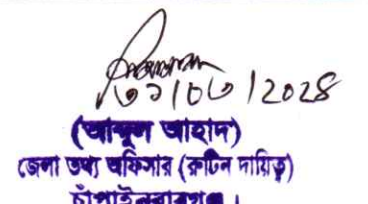 ৩১/০৩/২০২৪
(আব্দুল আহাদ)
জেলা তথ্য অফিসার (রুটিন দায়িত্ব)
চাঁপাইনবাবগঞ্জ।